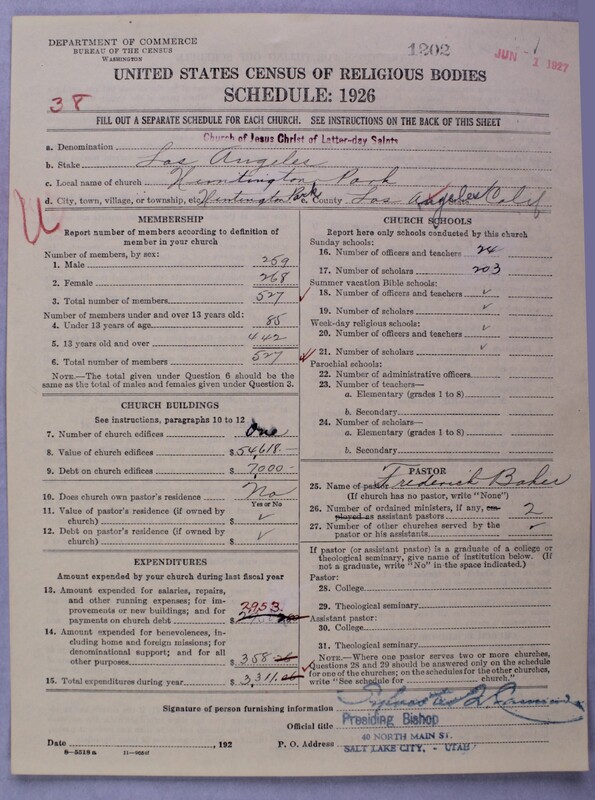 DEPARTMENT OF COMMERCE
BUREAU OF THE CENSUS
WASHINGTON
1202
JUN 1 1927
UNITED STATES CENSUS OF RELIGIOUS BODIES
SCHEDULE: 1926
38
FILL OUT A SEPARATE SCHEDULE FOR EACH CHURCH. SEE INSTRUCTIONS ON THE BACK OF THIS SHEET
Church of Jesus Christ of Latter-day Saints
a. Denomination
b. Stake Los Angeles
c. Local name of church Huntington Park
d. City, town, village, or township, etc. Huntington Park e. County Los Angeles Calif
MEMBERSHIP
Report number of members according to definition of
member in your church
Number of members, by sex:
1. Male 259
2. Female 268
3. Total number of members 527
Number of members under and over 13 years old:
4. Under 13 years of age 85
5. 13 years old and over 442
6. Total number of members 527
NOTE.—The total given under Question 6 should be the
same as the total of males and females given under Question 3.
CHURCH BUILDINGS
See instructions, paragraphs 10 to 12
7. Number of church edifices One
8. Value of church edifices $54,618.—
9. Debt on church edifices $7,000-
10. Does church own pastor's residence No
Yes or No
11. Value of pastor's residence (if owned by
church) $ ✓
12. Debt on pastor's residence (if owned by
church) $ ✓
EXPENDITURES
Amount expended by your church during last fiscal year
13. Amount expended for salaries, repairs,
and other running expenses; for im-
provements or new buildings; and for
payments on church debt $ 2953.
14. Amount expended for benevolences, in-
cluding home and foreign missions; for
denominational support; and for all
other purposes $ 358.26
15. Total expenditures during year $ 3,311.26
CHURCH SCHOOLS
Report here only schools conducted by this church
Sunday schools:
16. Number of officers and teachers 24
17. Number of scholars 203
Summer vacation Bible schools:
18. Number of officers and teachers ✓
19. Number of scholars ✓
Week-day religious schools:
20. Number of officers and teachers ✓
21. Number of scholars ✓
Parochial schools:
22. Number of administrative officers
23. Number of teachers—
a. Elementary (grades 1 to 8)
b. Secondary
24. Number of scholars—
a. Elementary (grades 1 to 8)
b. Secondary
PASTOR
25. Name of pastor Frederick Baker
(If church has no pastor, write "None")
26. Number of ordained ministers, if any, em-
ployed as assistant pastors 2
27. Number of other churches served by the
pastor or his assistants
If pastor (or assistant pastor) is a graduate of a college or
theological seminary, give name of institution below. (If
not a graduate, write "No" in the space indicated.)
Pastor:
28. College
29. Theological seminary
Assistant pastor:
30. College
31. Theological seminary
NOTE.—Where one pastor serves two or more churches,
Questions 28 and 29 should be answered only on the schedule
for one of the churches; on the schedules for the other churches,
write "See schedule for church."
Signature of person furnishing information Sylvester Q. Cannon
Official title Presiding Bishop
Date , 192 P. O. Address 40 NORTH MAIN ST.
SALT LAKE CITY, - UTAH
8—5518a